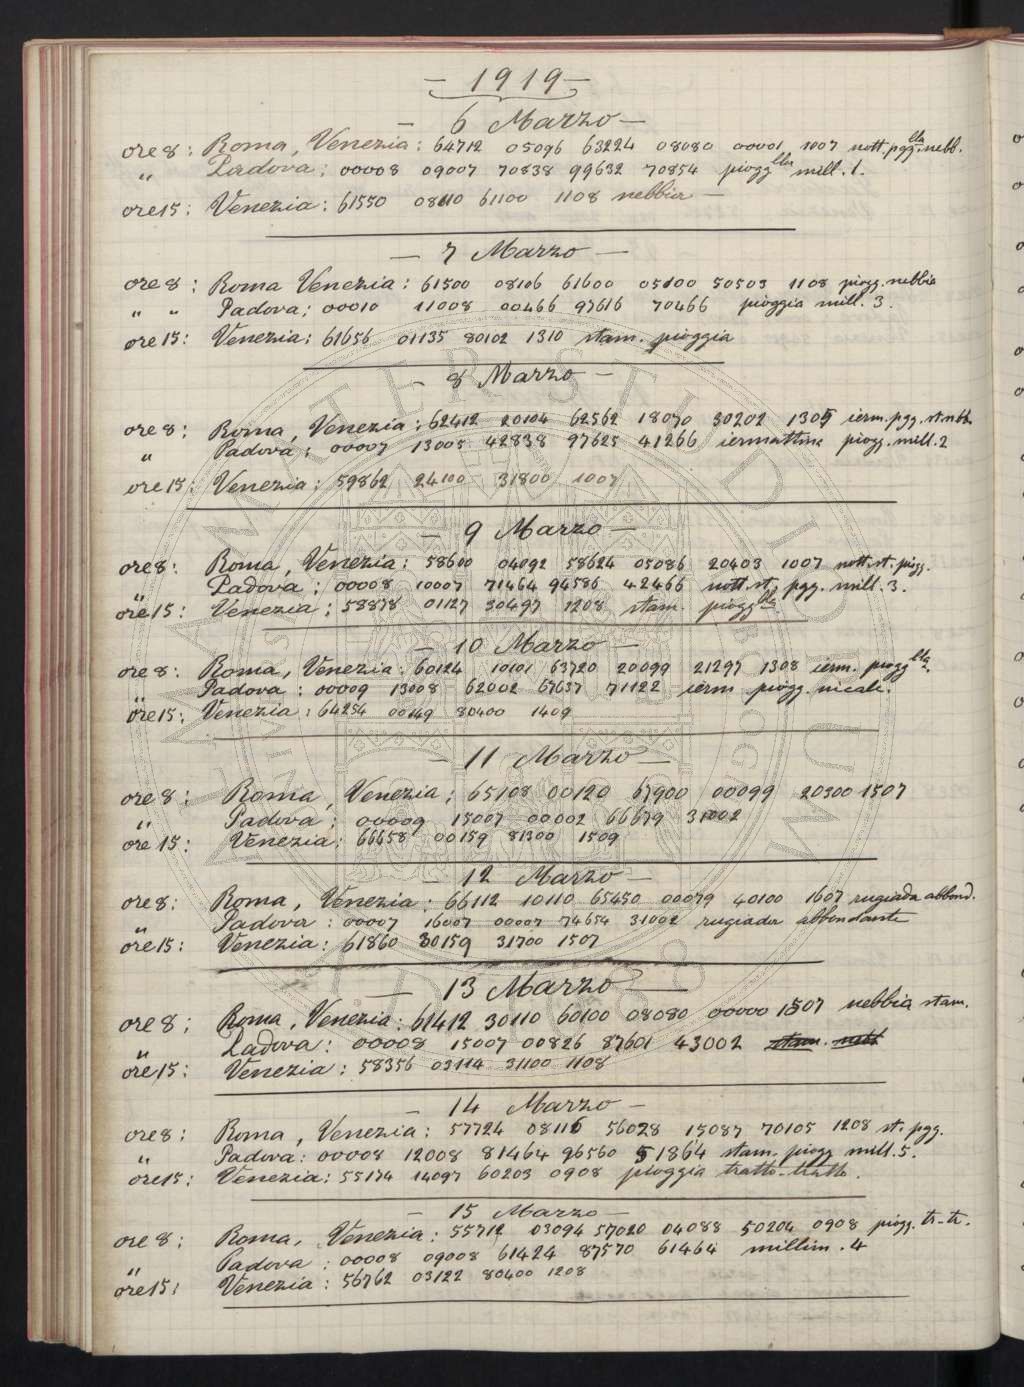 — 1919 —
— 6 Marzo —
ore 8: Roma, Venezia: 64712 05096 63224 08080 00001 1007 nott. pgg.lla nebb.
" Padova: 00008 09007 70838 99632 70854 piogglla mill. 1.
ore 15: Venezia: 61550 08110 61100 1108 nebbia —
— 7 Marzo —
ore 8: Roma Venezia: 61500 08106 61600 05100 50503 1108 piogg. nebbia
" " Padova: 00010 11008 00466 97616 70466 pioggia mill. 3.
ore 15: Venezia: 61656 01135 80102 1310 stam. pioggia
— 8 Marzo —
ore 8: Roma, Venezia: 62412 20104 62562 18070 30202 1305 ierm. pgg. st. nbb.
" Padova: 00007 13005 42838 97625 41266 iermattina piogg. mill. 2
ore 15: Venezia: 59862 24100 31800 1007
— 9 Marzo —
ore 8: Roma, Venezia: 58600 04092 58624 05086 20403 1007 nott. st. piogg.
" Padova: 00008 10007 71464 94586 42466 nott. st. pgg. mill. 3.
ore 15: Venezia: 58878 01127 30497 1208 stam. piogglla
— 10 Marzo —
ore 8: Roma, Venezia: 60124 10101 63720 20099 21297 1308 ierm. piogglla.
" Padova: 00009 13008 62002 67637 71122 ierm piogg. incalc.
ore 15: Venezia: 64254 00149 80400 1409
— 11 Marzo —
ore 8: Roma, Venezia: 65108 00120 67900 00099 20300 1507
" Padova: 00009 15007 00002 66679 31002
ore 15: Venezia: 66658 00159 81300 1509
— 12 Marzo —
ore 8: Roma, Venezia: 66112 10110 65450 00079 40100 1607 rugiada abbond.
" Padova: 00007 16007 00007 74654 31002 rugiada abbondante
ore 15: Venezia: 61860 30159 31700 1507
— 13 Marzo —
ore 8: Roma, Venezia: 61412 30110 60100 08080 00000 1507 nebbia stam.
" Padova: 00008 15007 00826 87601 43002 stam. nebb
ore 15: Venezia: 58356 03114 31100 1108
— 14 Marzo —
ore 8: Roma, Venezia: 57724 08116 56028 15087 70105 1208 st. pgg.
" Padova: 00008 12008 81464 96560 51864 stam. piogg mill. 5.
ore 15: Venezia: 55174 14097 60203 0908 pioggia tratto-tratto.
— 15 Marzo —
ore 8: Roma, Venezia: 55712 03094 57020 04088 50204 0908 piogg. tr.-tr.
" Padova: 00008 09008 61424 87570 61464 millim. 4
ore 15: Venezia: 56762 03122 80400 1208